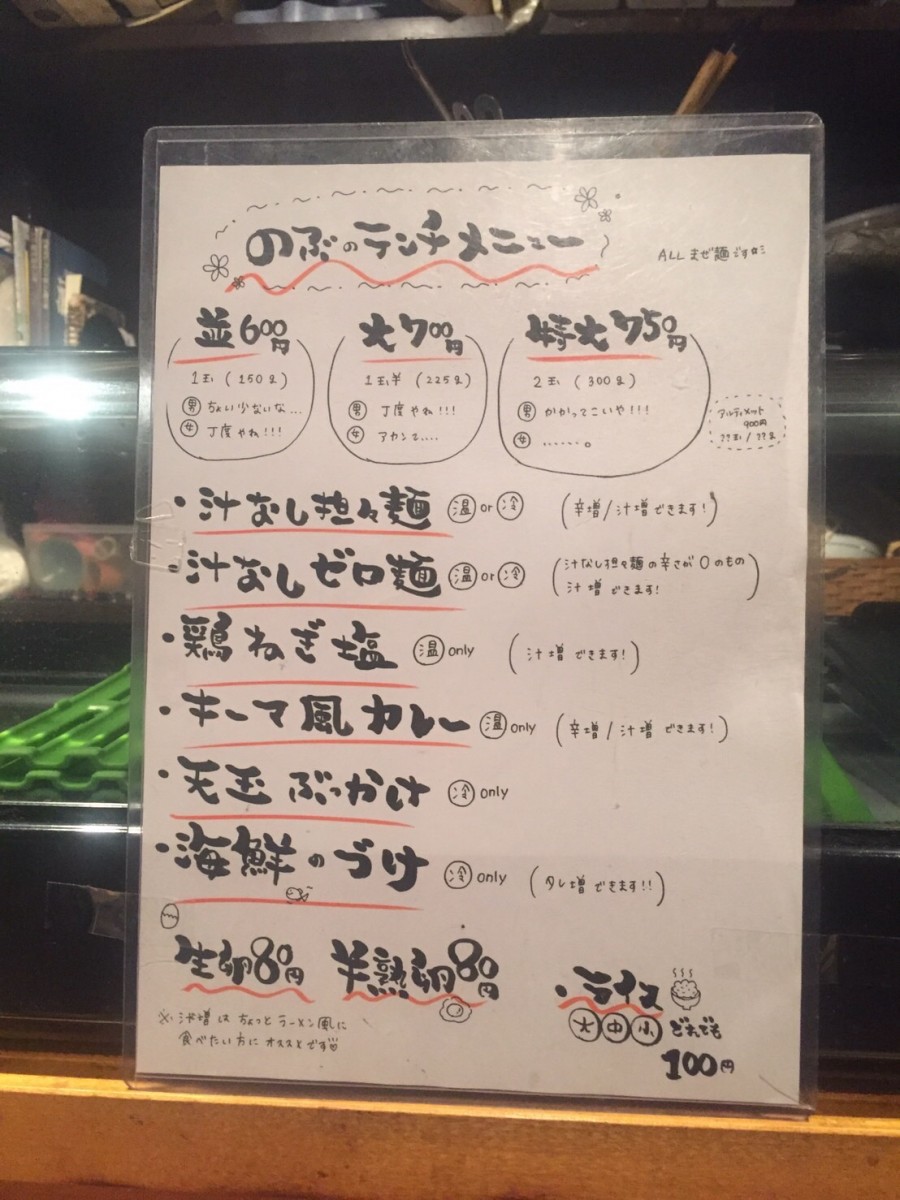 のぶのランチメニュー
ALLまぜ麺です
並600円
1玉(150g)
男 ちょい少ないな...
女 丁度やね!!!
大700円
1玉半(225g)
男 丁度やね!!!
女 アカンて....
特大750円
2玉(300g)
男 かかってこいや!!!
女 ......。
アルティメット
900円
??玉/??g
・汁なし担々麺 温or冷 (辛増/汁増できます!)
・汁なしゼロ麺 温or冷 (汁なし担々麺の辛さが0のもの
汁増できます!)
・鶏ねぎ塩 温only (汁増できます!)
・キーマ風カレー 温only (辛増/汁増できます!)
・天玉ぶっかけ 冷only
・海鮮のづけ 冷only (タレ増できます!!)
生卵80円 半熟卵80円
・ライス
大中小どれでも
100円
※汁増はちょっとラーメン風に
食べたい方にオススメです